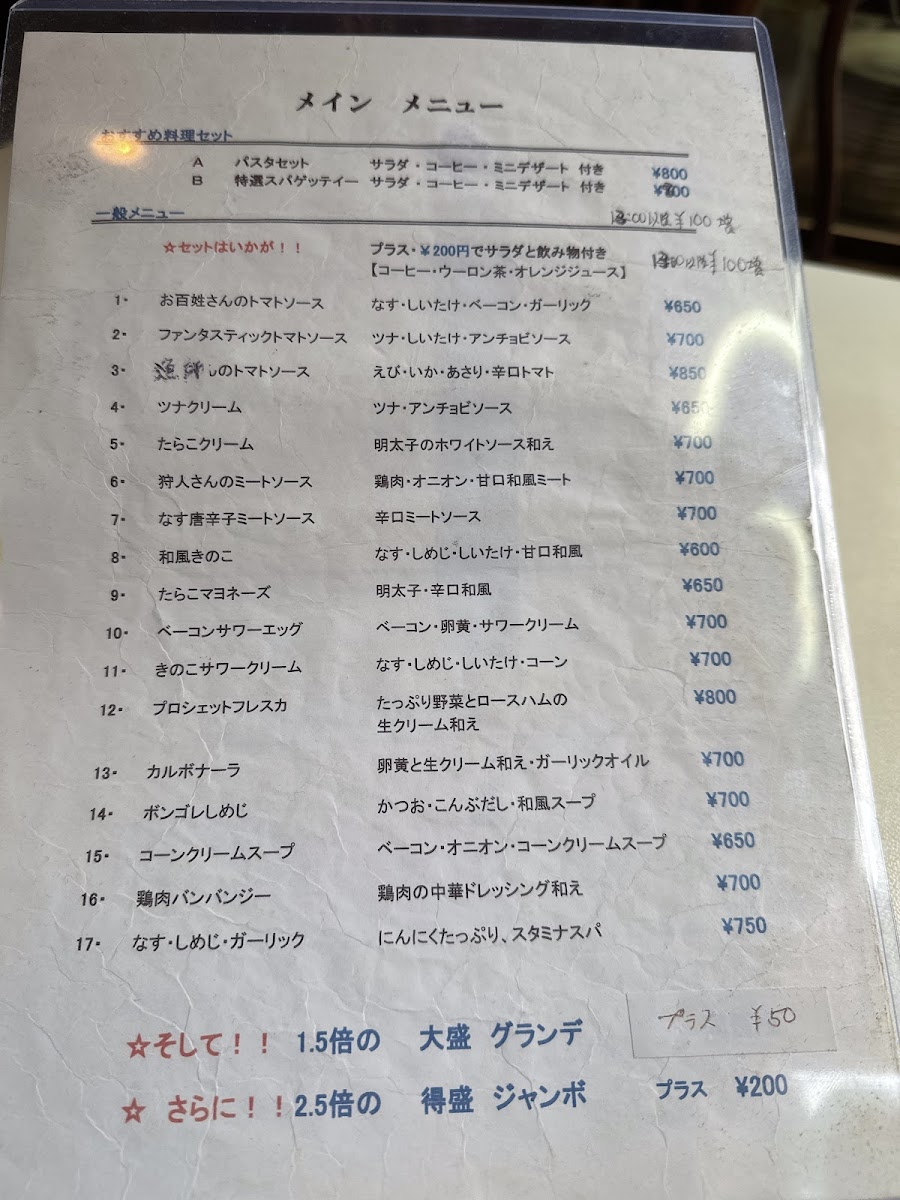 メイン メニュー
おすすめ料理セット
A パスタセット サラダ・コーヒー・ミニデザート 付き ¥800
B 特選スパゲッティー サラダ・コーヒー・ミニデザート 付き
一般メニュー ¥100増
☆セットはいかが！！ プラス・¥200円でサラダと飲み物付き
【コーヒー・ウーロン茶・オレンジジュース】 ¥100増
1・ お百姓さんのトマトソース なす・しいたけ・ベーコン・ガーリック ¥650
2・ ファンタスティックトマトソース ツナ・しいたけ・アンチョビソース ¥700
3・ 漁師のトマトソース えび・いか・あさり・辛口トマト ¥850
4・ ツナクリーム ツナ・アンチョビソース ¥650
5・ たらこクリーム 明太子のホワイトソース和え ¥700
6・ 狩人さんのミートソース 鶏肉・オニオン・甘口和風ミート ¥700
7・ なす唐辛子ミートソース 辛口ミートソース ¥700
8・ 和風きのこ なす・しめじ・しいたけ・甘口和風 ¥600
9・ たらこマヨネーズ 明太子・辛口和風 ¥650
10・ ベーコンサワーエッグ ベーコン・卵黄・サワークリーム ¥700
11・ きのこサワークリーム なす・しめじ・しいたけ・コーン ¥700
12・ プロシェットフレスカ たっぷり野菜とロースハムの ¥800
生クリーム和え
13・ カルボナーラ 卵黄と生クリーム和え・ガーリックオイル ¥700
14・ ボンゴレしめじ かつお・こんぶだし・和風スープ ¥700
15・ コーンクリームスープ ベーコン・オニオン・コーンクリームスープ ¥650
16・ 鶏肉バンバンジー 鶏肉の中華ドレッシング和え ¥700
17・ なす・しめじ・ガーリック にんにくたっぷり、スタミナスパ ¥750
☆そして！！ 1.5倍の 大盛 グランデ プラス ¥50
☆ さらに！！2.5倍の 得盛 ジャンボ プラス ¥200